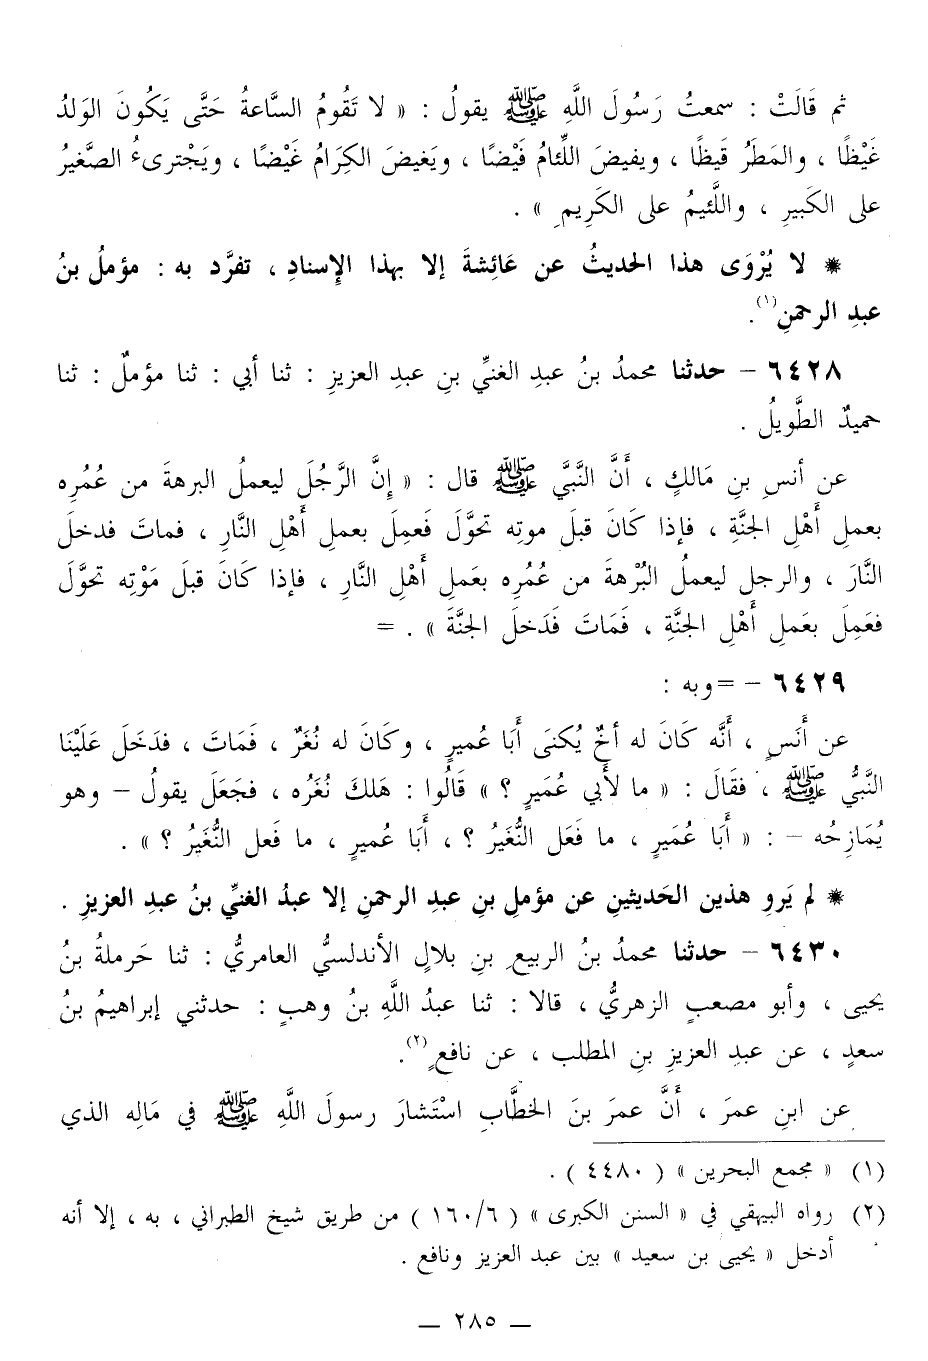 ثم قَالَتْ : سمعتُ رَسُولَ اللَّهِ ﷺ يقولُ : « لا تَقُومُ السَّاعةُ حَتَّى يَكُونَ الوَلدُ
غَيْظًا ، والمَطَرُ قَيظًا ، ويفيضَ اللِّئامُ فَيْضًا ، ويَغيضَ الكِرَامُ غَيْضًا ، ويَجْترىءُ الصَّغيرُ
على الكَبيرِ ، واللَّئيمُ على الكَرِيمِ » .
* لا يُرْوَى هذا الحديثُ عن عَائِشةَ إلا بهذا الإِسنادِ ، تفرَّد به : مؤملُ بنُ
عبدِ الرحمنِ(١).
٦٤٢٨ – حدثنا محمدُ بنُ عبدِ الغنيِّ بنِ عبدِ العزيزِ : ثنا أبي : ثنا مؤملٌ : ثنا
حميدٌ الطَّويلُ .
عن أنسِ بنِ مَالكٍ ، أَنَّ النَّبيَّ ﷺ قال : « إنَّ الرَّجُلَ ليعملُ البرهةَ من عُمُرِه
بعملِ أَهْلِ الجنَّةِ ، فإذا كَانَ قبلَ موتِه تحوَّلَ فَعمِلَ بعملِ أَهْلِ النَّارِ ، فماتَ فدخلَ
النَّارَ ، والرجل ليعملُ البُرْهةَ من عُمُرِه بعَملِ أَهْلِ النَّارِ ، فإذا كَانَ قبلَ مَوْتِه تحوَّلَ
فعَمِلَ بعَملِ أَهْلِ الجنَّةِ ، فَمَاتَ فَدَخلَ الجنَّةَ » . =
٦٤٢٩ – =وبه :
عن أَنَسٍ ، أَنَّه كَانَ له أخٌ يُكنىَ أَبَا عُميرٍ ، وكَانَ له نُغَرٌ ، فَمَاتَ ، فدَخَلَ عَلَيْنَا
النَّبيُّ ﷺ ، فقَالَ : « ما لأَبي عُمَيرٍ ؟ » قَالُوا : هَلكَ نُغَرُه ، فجَعَلَ يقولُ – وهو
يُمَازِحُه – : « أَبَا عُمَيرٍ ، ما فَعَل النُّغَيرُ ؟ ، أَبَا عُميرٍ ، ما فَعل النُّغَيرُ ؟ » .
* لم يَروِ هذين الحَديثينِ عن مؤملِ بنِ عبدِ الرحمنِ إلا عبدُ الغنيِّ بنُ عبدِ العزيزِ .
٦٤٣٠ – حدثنا محمدُ بنُ الربيعِ بنِ بلالٍ الأندلسيُّ العامريُّ : ثنا حَرملةُ بنُ
يحيى ، وأبو مصعبٍ الزهريُّ ، قالا : ثنا عبدُ اللَّهِ بنُ وهبٍ : حدثني إبراهيمُ بنُ
سعدٍ ، عن عبدِ العزيزِ بنِ المطلب ، عن نافعٍ(٢).
عن ابنِ عمرَ ، أَنَّ عمرَ بنَ الخطَّابِ اسْتَشارَ رسولَ اللَّهِ ﷺ في مَالِه الذي
(١) « مجمع البحرين » ( ٤٤٨٠ ) .
(٢) رواه البيهقي في « السنن الكبرى » ( ٦/ ١٦٠ ) من طريق شيخ الطبراني ، به ، إلا أنه
أدخل « يحيى بن سعيد » بين عبد العزيز ونافع .
– ٢٨٥ –